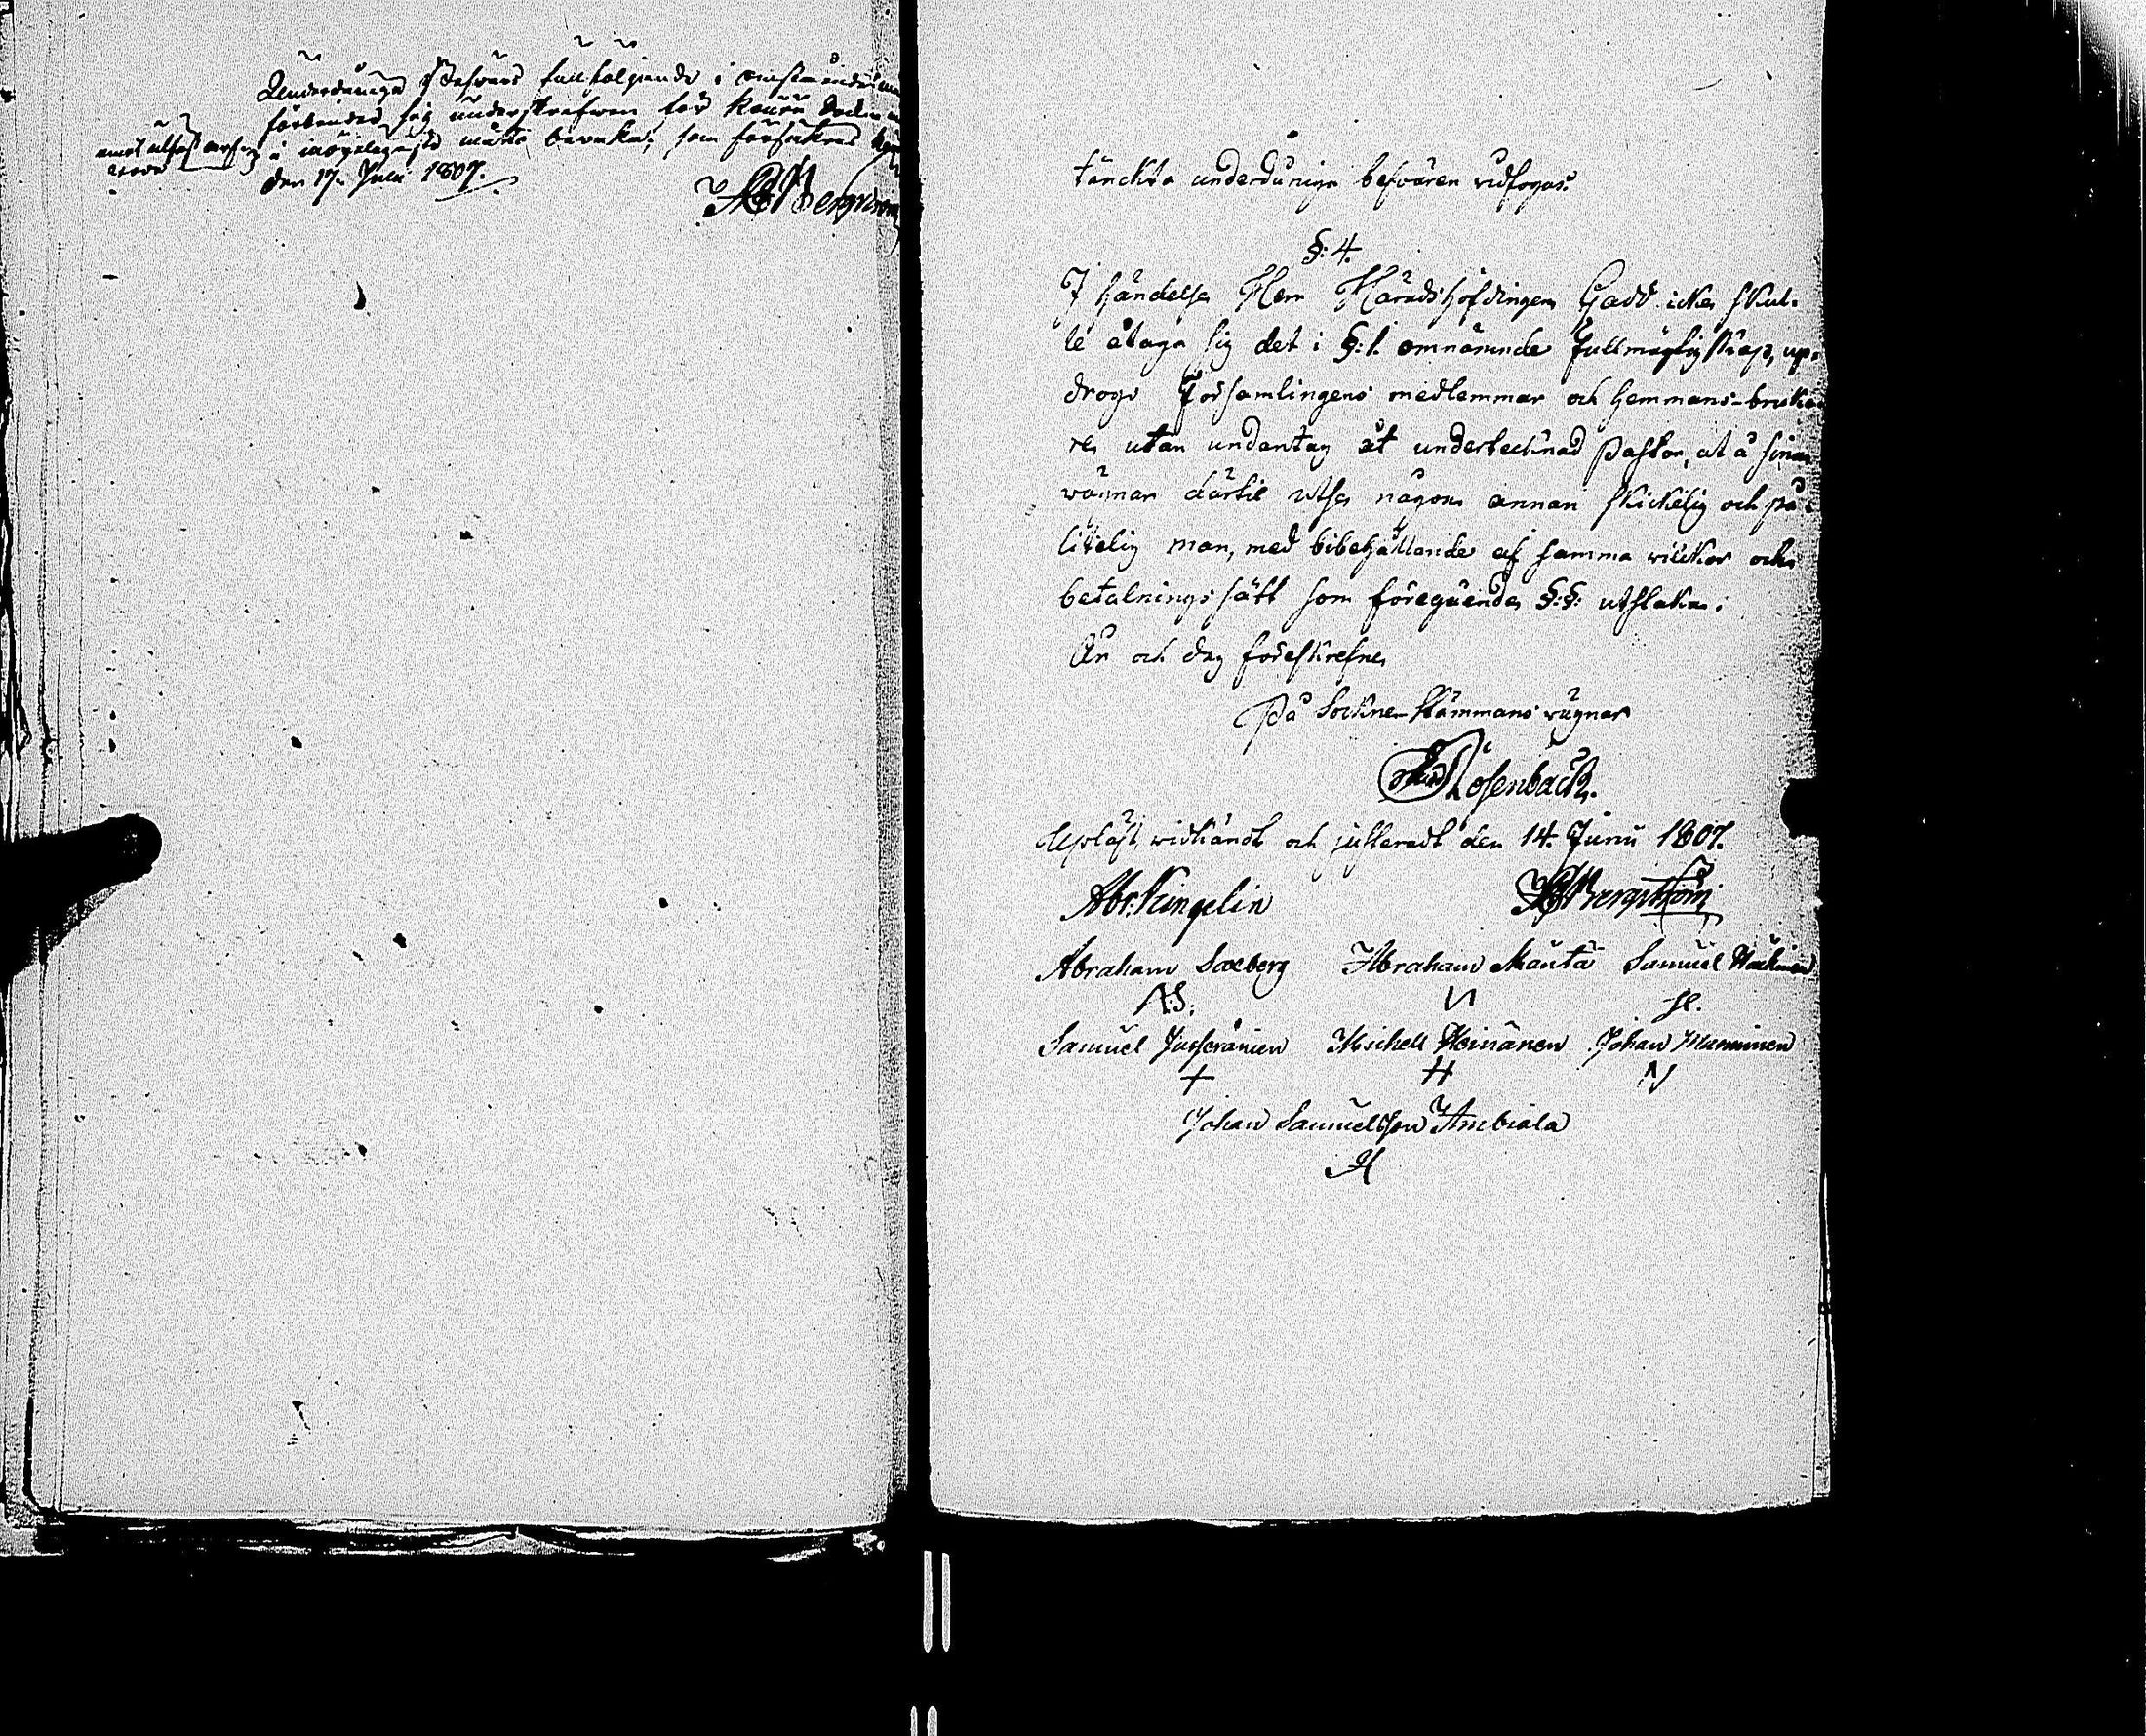 Underdåniga Besvärs fullföljande i
förbinder sig underskrefwen
å möjeligaste måtto bewaka; som försäkras
den 17. Julii 1807.
tänckta underdåniga besvären vidfogas.
§: 4.
I händelse Herr Häradshöfdingen Gadd icke skul-
le åtaga sig det i §: 1. omnämnde fullmägtigskap, up-
drogs Församlingens medlemmar och hemmans-bruka-
re, utan undantag åt undertecknad Pastor, at å sina
vägnar därtil utse någon annan skickelig och på-
litelig man, med bibehållande af samma willkor och
betalningssätt som föregående §:§: utstaka.
År och dag föreskrefne
På Sockne-Stämmans vägnar
Rosenback.
Upläst, widkändt och justeradt den 14. Junii 1807.
Abr: Kingelin Bergström
Abraham Saxberg Abraham Mäntä Samuel
N:S: N
Samuel Michell Heinänen Johan Mumminen
+ H N
Johan Samuelsson Ambiala
H